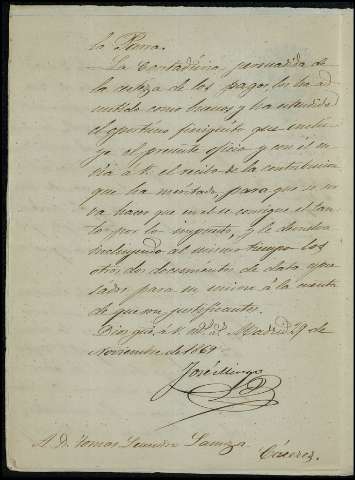 la Puma.
La Contaduría, persuadida de
la certeza de los pagos, los ha ad
mitido como buenos y ha estendido
el oportuno finiquito que
el presente oficio y con él en
vía á V. el recibo de la contribucion
que ha mentado, para que se sir
va hacer que en él se consigne el tan
to por lo impuesto, y le devuelva
incluyendo al mismo tiempo los
otros dos documentos de data espre
sados para su union á la cuenta
de que son justificantes.
Dios gue. á V. ms. as. Madrid 29 de
Noviembre de 1869
José
A D. Tomas Lanuza.
Cáceres.